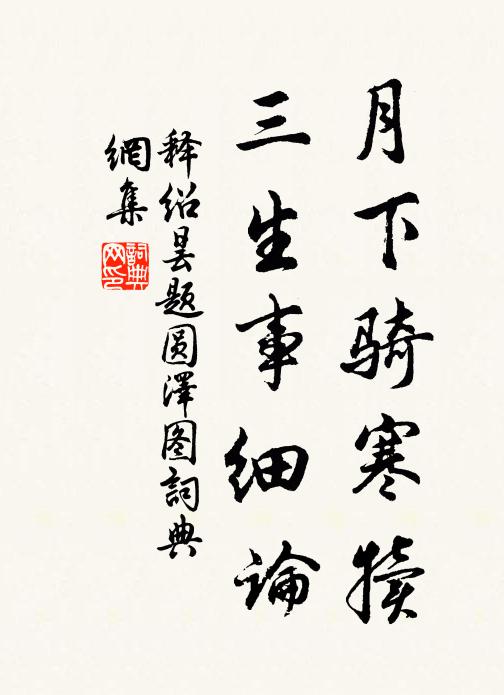 月下骑寒犊
三生事细论
释绍昙题圆澤图詞典
網集
詞典
网印